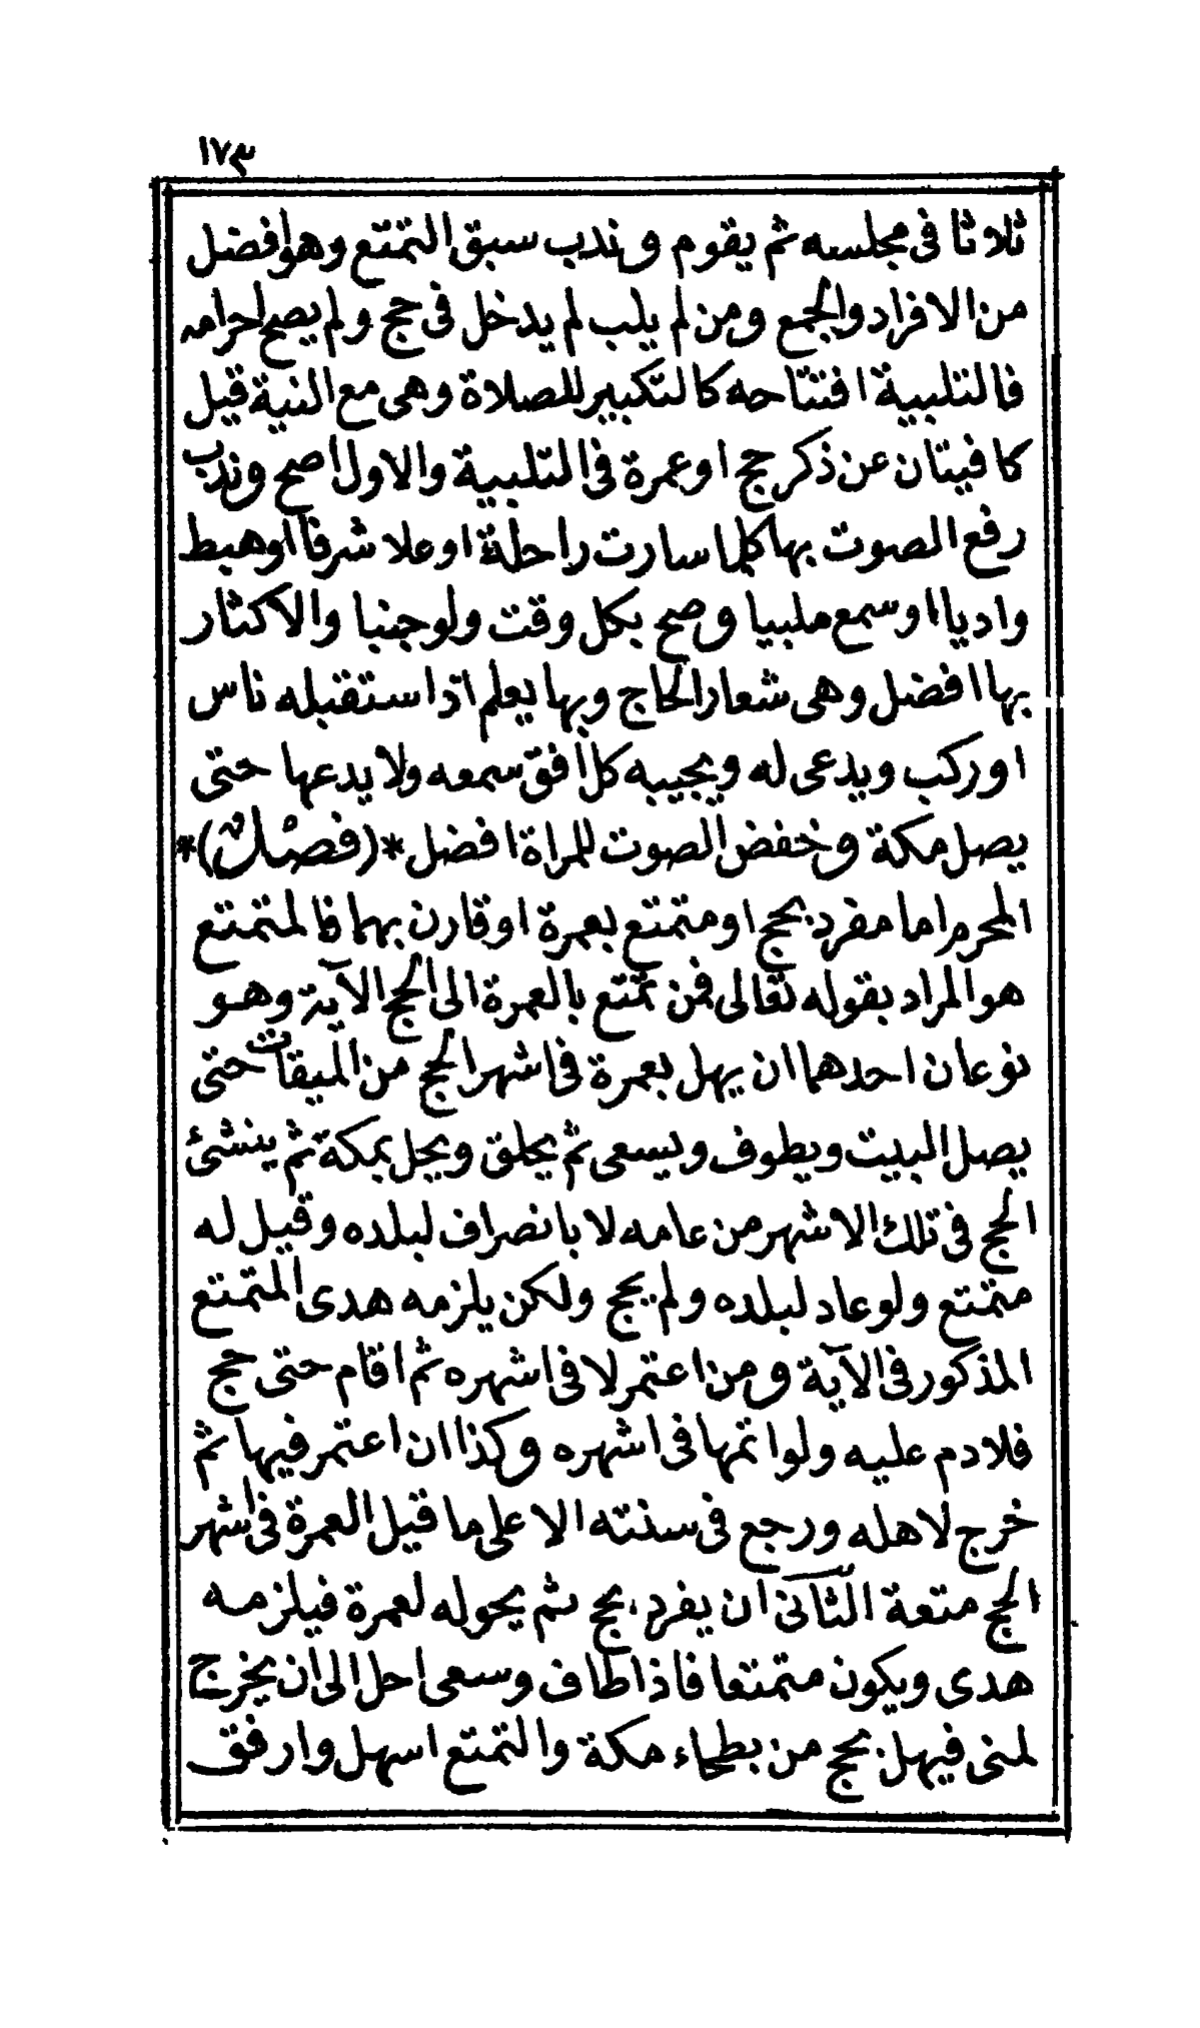 ١٧٣
ثلاثا فى مجلسه ثم يقوم وندب سبق التمتع وهو افضل
من الافراد والجمع ومن لم يلب لم يدخل فى حج ولم يصح احرامه
فالتلبية افتتاحه كالتكبير للصلاة وهى مع النية قيل
كافيتان عن ذكر حج او عمرة فى التلبية والاول اصح وندب
رفع الصوت بها كلما سارت راحلة او علا شرفا او هبط
واديا او سمع ملبيا وصح بكل وقت ولو جنبا والاكثار
بها افضل وهى شعار الحاج وبها يعلم اذا استقبله ناس
او ركب ويدعى له ويجيبه كل افق سمعه ولا يدعها حتى
يصل مكة وخفض الصوت للمراة افضل *(فصل)*
المحرم اما مفرد بحج او متمتع بعمرة او قارن بهما فالمتمتع
هو المراد بقوله تعالى فمن تمتع بالعمرة الى الحج الآية وهو
نوعان احدهما ان يهل بعمرة فى اشهر الحج من الميقات حتى
يصل البيت ويطوف ويسعى ثم يحلق ويحل بمكة ثم ينشئ
الحج فى تلك الاشهر من عامه لا بانصراف لبلده وقيل له
متمتع ولو عاد لبلده ولم يحج ولكن يلزمه هدى المتمتع
المذكور فى الآية ومن اعتمر لا فى اشهره ثم اقام حتى حج
فلا دم عليه ولو اتمها فى اشهره وكذا ان اعتمر فيها ثم
خرج لاهله ورجع فى سنته الا على ما قيل العمرة فى اشهر
الحج متعة الثانى ان يفرد بحج ثم يحوله لعمرة فيلزمه
هدى ويكون متمتعا فاذا طاف وسعى احل الى ان يخرج
لمنى فيهل بحج من بطحاء مكة والتمتع اسهل وارفق